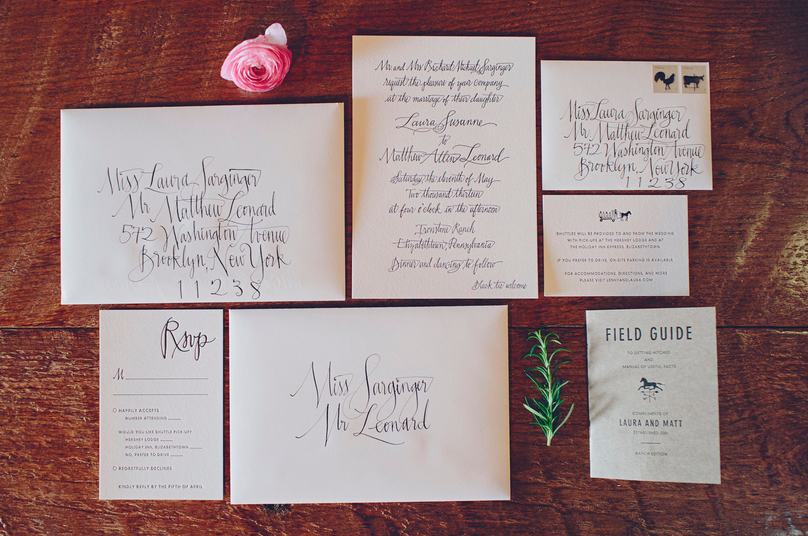 Miss Laura Sarginger
Mr Matthew Leonard
572 Washington Avenue
Brooklyn, New York
11238
Mr and Mrs Richard Michael Sarginger
request the pleasure of your company
at the marriage of their daughter
Laura Susanne
to
Matthew Allen Leonard
Saturday, the eleventh of May
Two thousand thirteen
at four o'clock in the afternoon
Ironstone Ranch
Elizabethtown, Pennsylvania
Dinner and dancing to follow
Black tie welcome
Miss Laura Sarginger
Mr Matthew Leonard
572 Washington Avenue
Brooklyn, New York
11238
SHUTTLES WILL BE PROVIDED TO AND FROM THE WEDDING
WITH PICK-UPS AT THE HERSHEY LODGE AND AT
THE HOLIDAY INN EXPRESS, ELIZABETHTOWN.
IF YOU PREFER TO DRIVE, ON-SITE PARKING IS AVAILABLE.
FOR ACCOMMODATIONS, DIRECTIONS, AND MORE
PLEASE VISIT LENNYANDLAURA.COM
Rsvp
M
HAPPILY ACCEPTS
NUMBER ATTENDING
WOULD YOU LIKE SHUTTLE PICK UP?
HERSHEY LODGE
HOLIDAY INN, ELIZABETHTOWN
NO, PREFER TO DRIVE
REGRETFULLY DECLINES
KINDLY REPLY BY THE FIFTH OF APRIL
Miss Sarginger
Mr Leonard
FIELD GUIDE
TO GETTING HITCHED
AND
MANUAL OF USEFUL FACTS
COMPLIMENTS OF
LAURA AND MATT
ESTABLISHED
RANCH EDITION